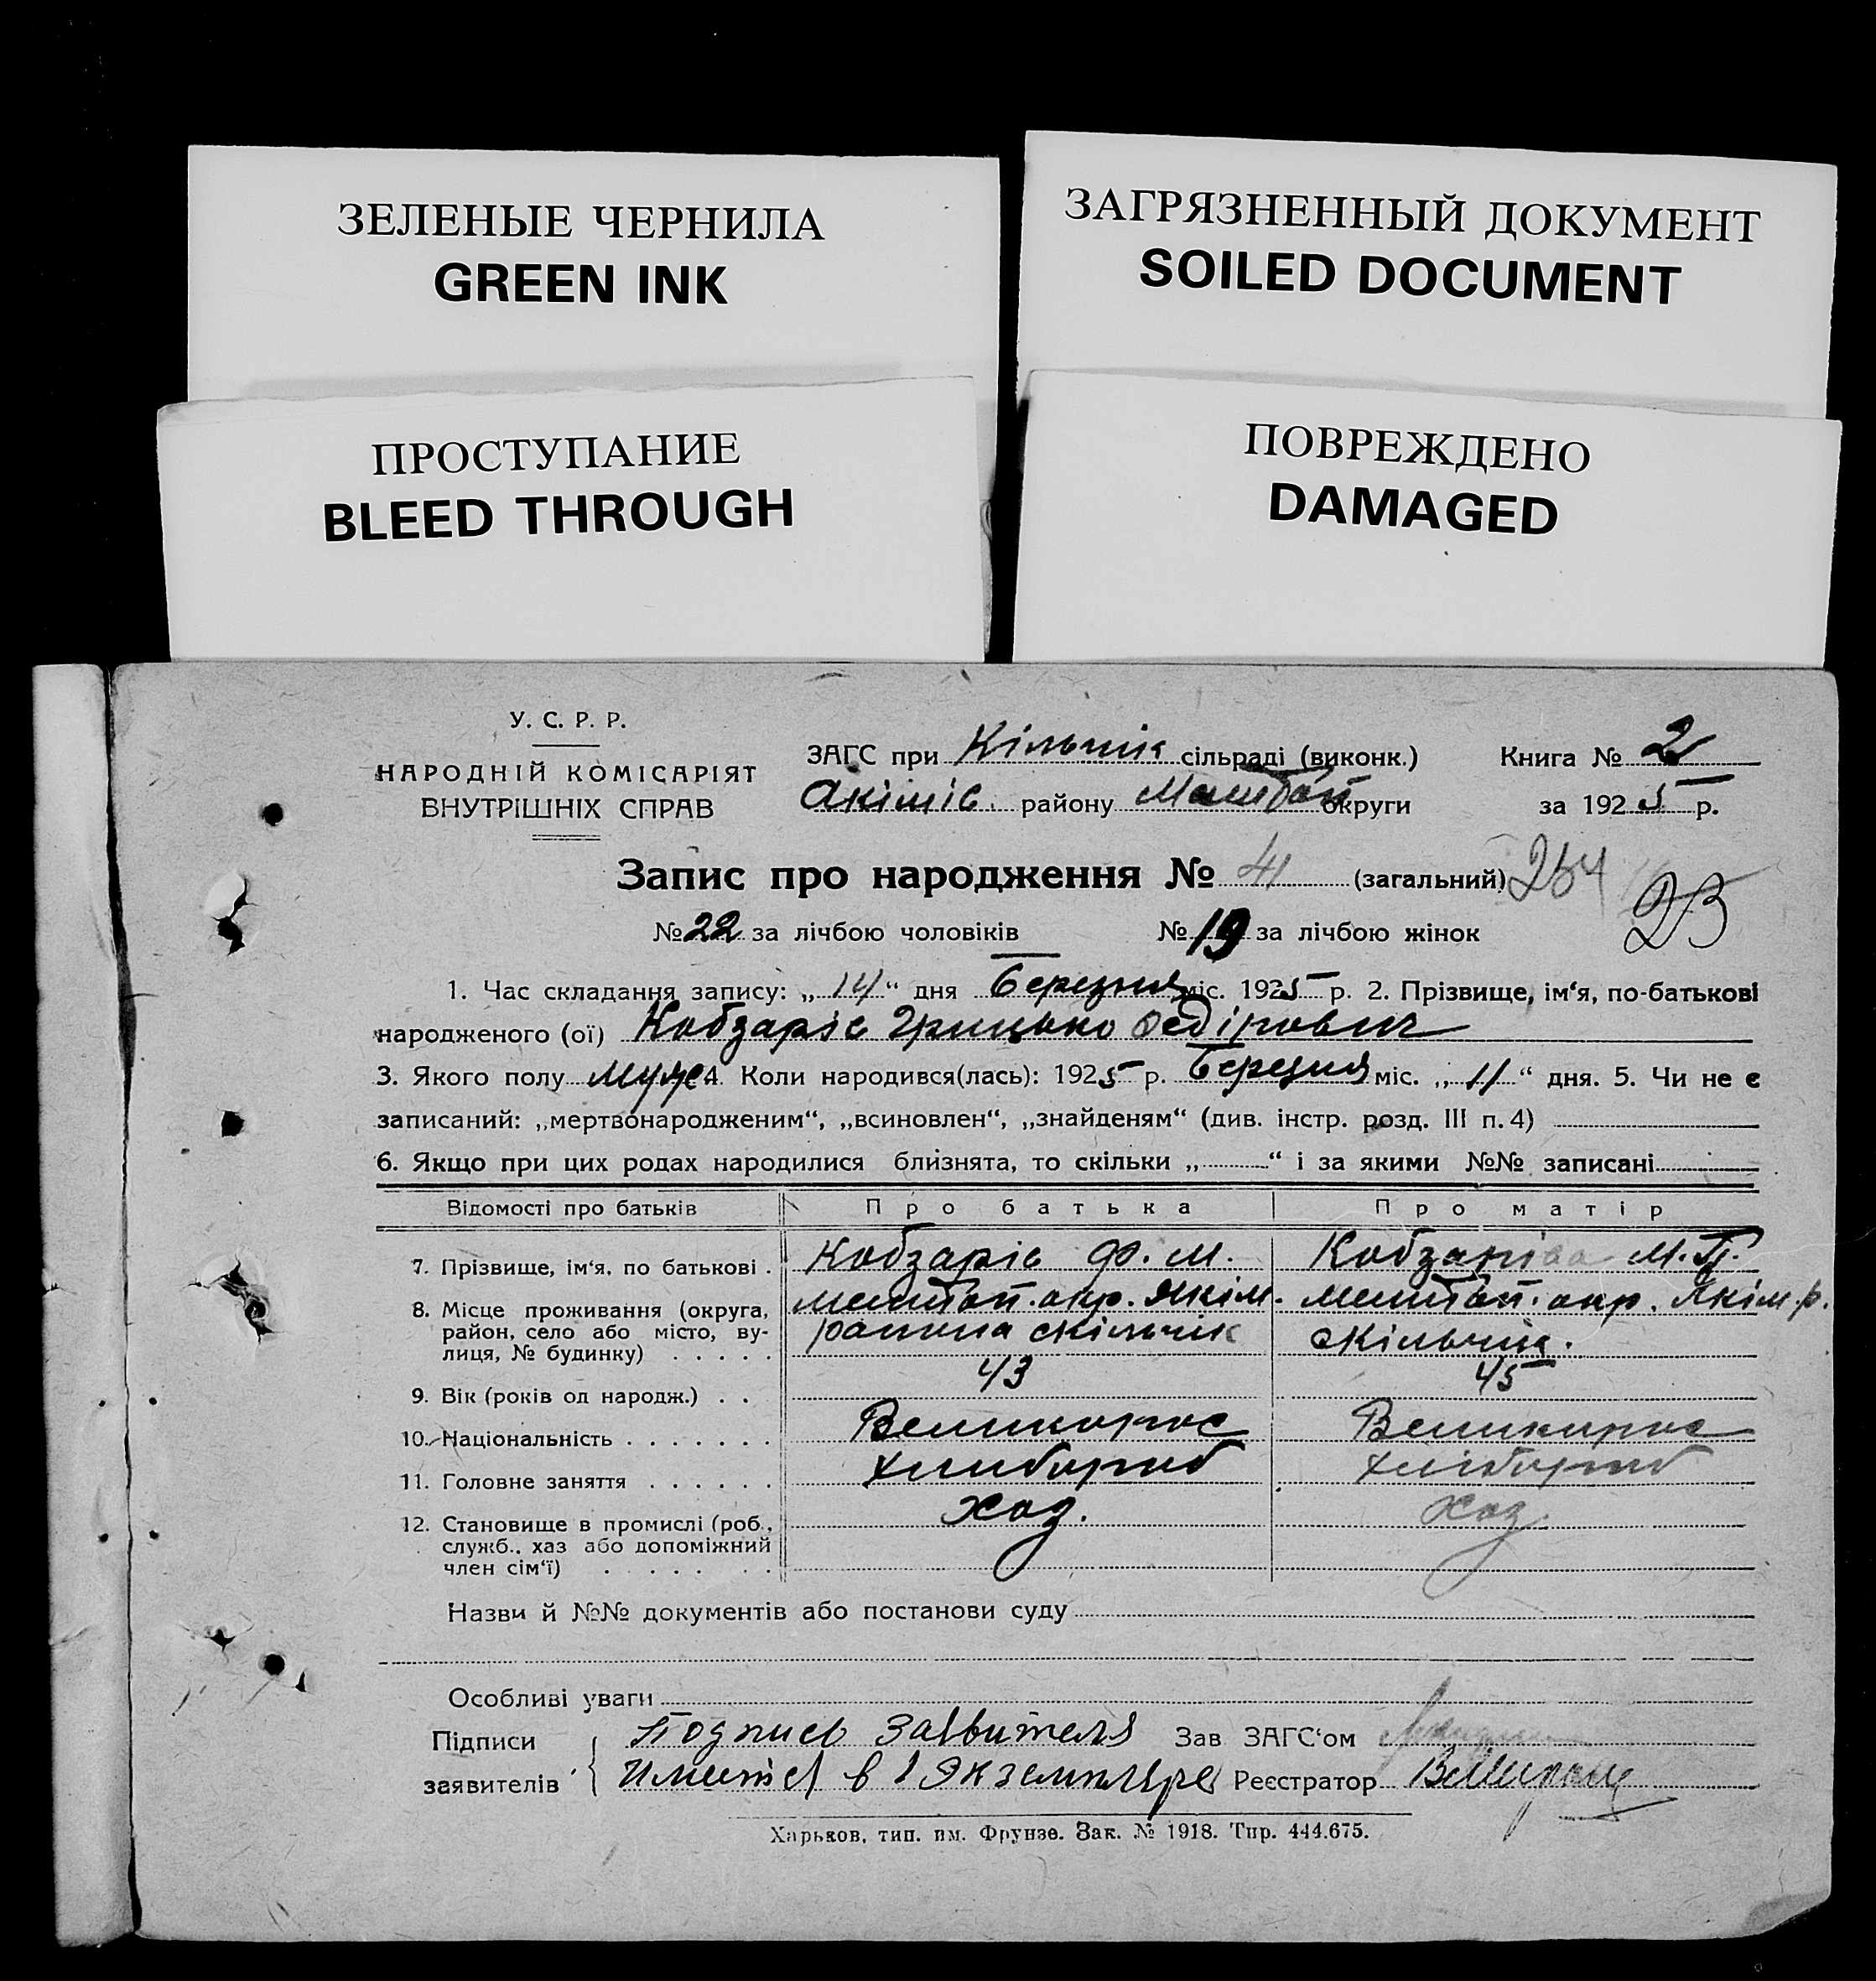 ЗЕЛЕНЫЕ ЧЕРНИЛА
GREEN INK
ЗАГРЯЗНЕННЫЙ ДОКУМЕНТ
SOILED DOCUMENT
ПРОСТУПАНИЕ
BLEED THROUGH
ПОВРЕЖДЕНО
DAMAGED
У. С. Р. Р.
НАРОДНІЙ КОМІСАРІЯТ
ВНУТРІШНІХ СПРАВ
ЗАГС при Кільчік сільраді (виконк.) Книга № 2
Акіміс. району округи за 1925 р.
Запис про народження № 41 (загальний) 254
№ 22 за лічбою чоловіків № 19 за лічбою жінок
1. Час складання запису: „14“ дня Березня міс. 1925 р. 2. Прізвище, ім'я, по-батькові
народженого (ої) Кобзарів Грицько Федірович
3. Якого полу муже 4. Коли народився(лась): 1925 р. Березня міс. „11“ дня. 5. Чи не є
записаний: „мертвонародженим“, „всиновлен“, „знайденям“ (див. інстр. розд. III п. 4)
6. Якщо при цих родах народилися близнята, то скільки „ “ і за якими №№ записані
Відомості про батьків Про батька Про матір
7. Прізвище, ім'я, по батькові . Кобзарів Ф. М. Кобзаріва М. П.
8. Місце проживання (округа, Мелитоп. окр. Якім. Мелитоп. окр. Якім. р.
район, село або місто, ву- района скільчік скільчік.
лиця, № будинку) . . . . .
9. Вік (років од народж.) . . 43 45
10. Національність . . . . . . . Великорос Великорос
11. Головне заняття . . . . . . хлибороб хлибороб
12. Становище в промислі (роб., хоз. хоз.
служб., хаз або допоміжний
член сім'ї) . . . . . . .
Назви й №№ документів або постанови суду
Особливі уваги
Підписи Подпись Заявителя Зав ЗАГС'ом
заявителів Имеется в 1 Экземпляре Реєстратор
Харьков, тип. им. Фрунзе. Зак. № 1918. Тир. 444.675.